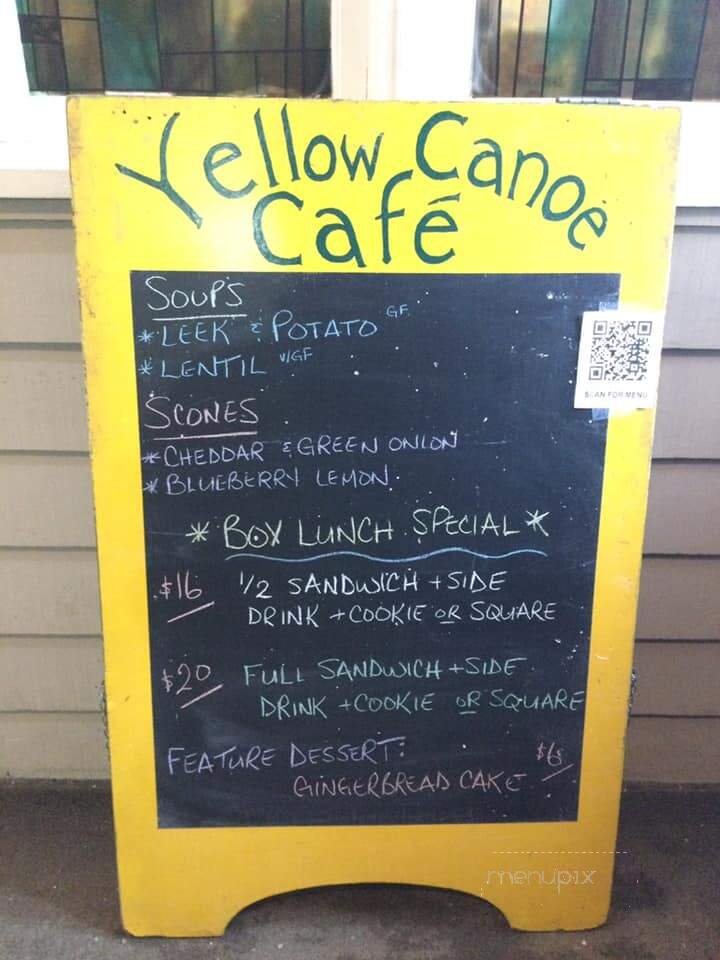 Yellow Canoe
Café
SOUPS
* LEEK & POTATO GF
* LENTIL V/GF
SCONES
* CHEDDAR & GREEN ONION
* BLUEBERRY LEMON
SCAN FOR MENU
* BOX LUNCH SPECIAL *
$16 1/2 SANDWICH + SIDE
DRINK + COOKIE OR SQUARE
$20 FULL SANDWICH + SIDE
DRINK + COOKIE OR SQUARE
FEATURE DESSERT:
GINGERBREAD CAKE
menupix